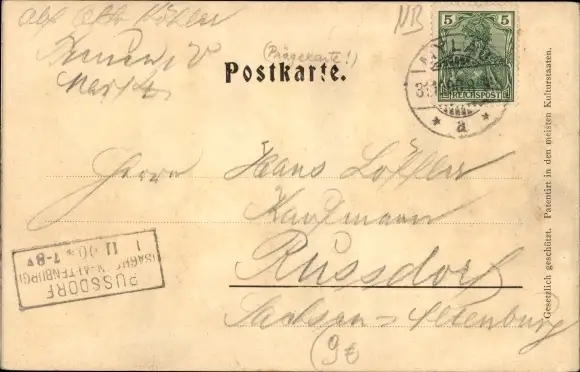 Abs. Otto Köhler
NB
(Prägekarte!)
Postkarte.
5 5
REICHSPOST
a
Herrn Hans Löffler
Kaufmann
Russdorf
Sachsen-Altenburg
RUSSDORF
(SACHSEN-ALTENBURG)
1 11 00 * 7-8V
9€
Gesetzlich geschützt. Patentirt in den meisten Kulturstaaten.